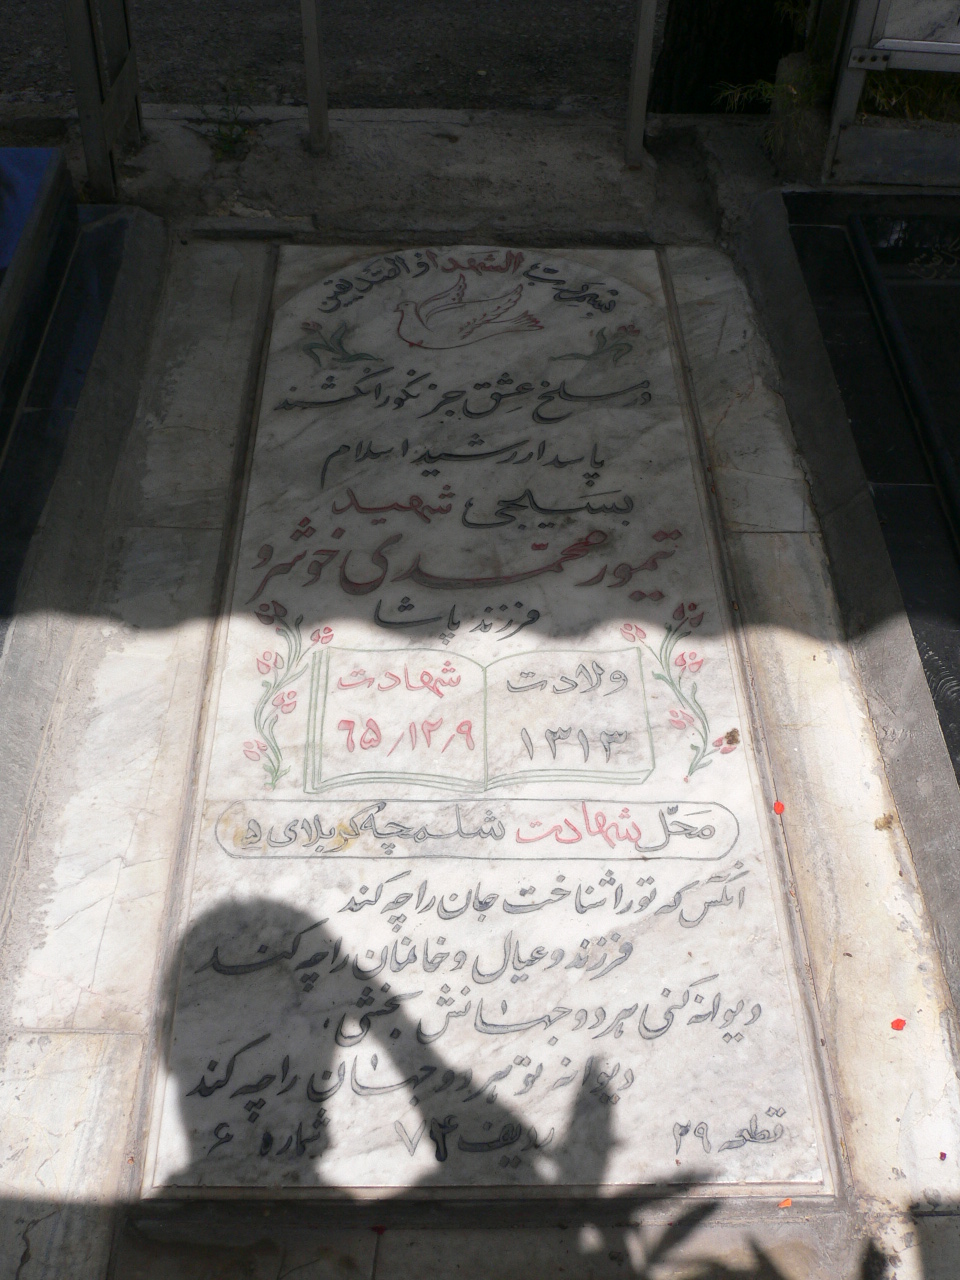 بسم رب الشهدا و الصدیقین
در مسلخ عشق جز نکو را نکشند
پاسدار رشید اسلام
بسیجی شهید
تیمور محمدی خوشرو
فرزند پاشا
ولادت
۱۳۱۳
شهادت
۶۵/۱۲/۹
محل شهادت شلمچه کربلای ۵
آنکس که تو را شناخت جان را چه کند
فرزند و عیال و خانمان را چه کند
دیوانه کنی هر دو جهانش بخشی
دیوانه تو هر دو جهان را چه کند
قطعه ۲۹ ردیف ۷۴ شماره ۶